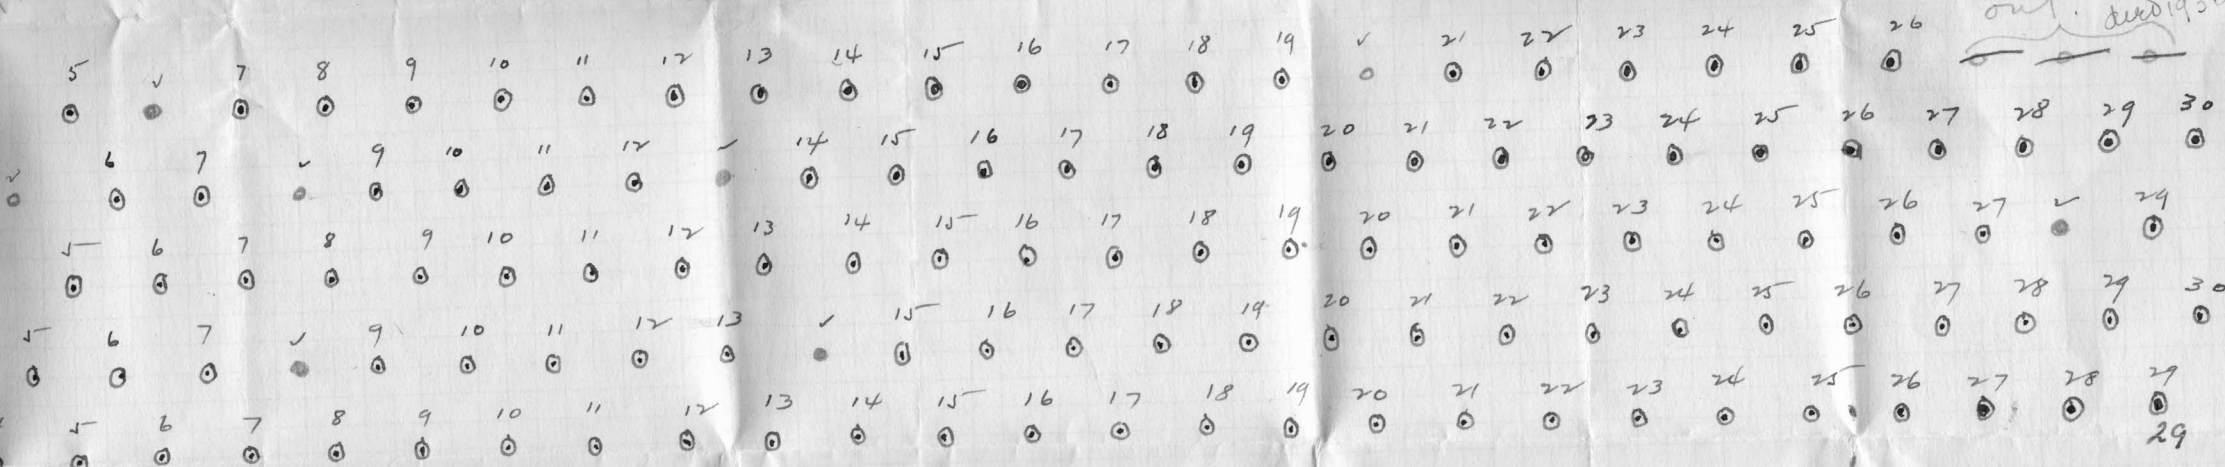 out.
5 ✓ 7 8 9 10 11 12 13 14 15 16 17 18 19 ✓ 21 22 23 24 25 26
✓ 6 7 ✓ 9 10 11 12 ✓ 14 15 16 17 18 19 20 21 22 23 24 25 26 27 28 29 30
5 6 7 8 9 10 11 12 13 14 15 16 17 18 19 20 21 22 23 24 25 26 27 ✓ 29
5 6 7 ✓ 9 10 11 12 13 ✓ 15 16 17 18 19 20 21 22 23 24 25 26 27 28 29 30
5 6 7 8 9 10 11 12 13 14 15 16 17 18 19 20 21 22 23 24 25 26 27 28 29
29